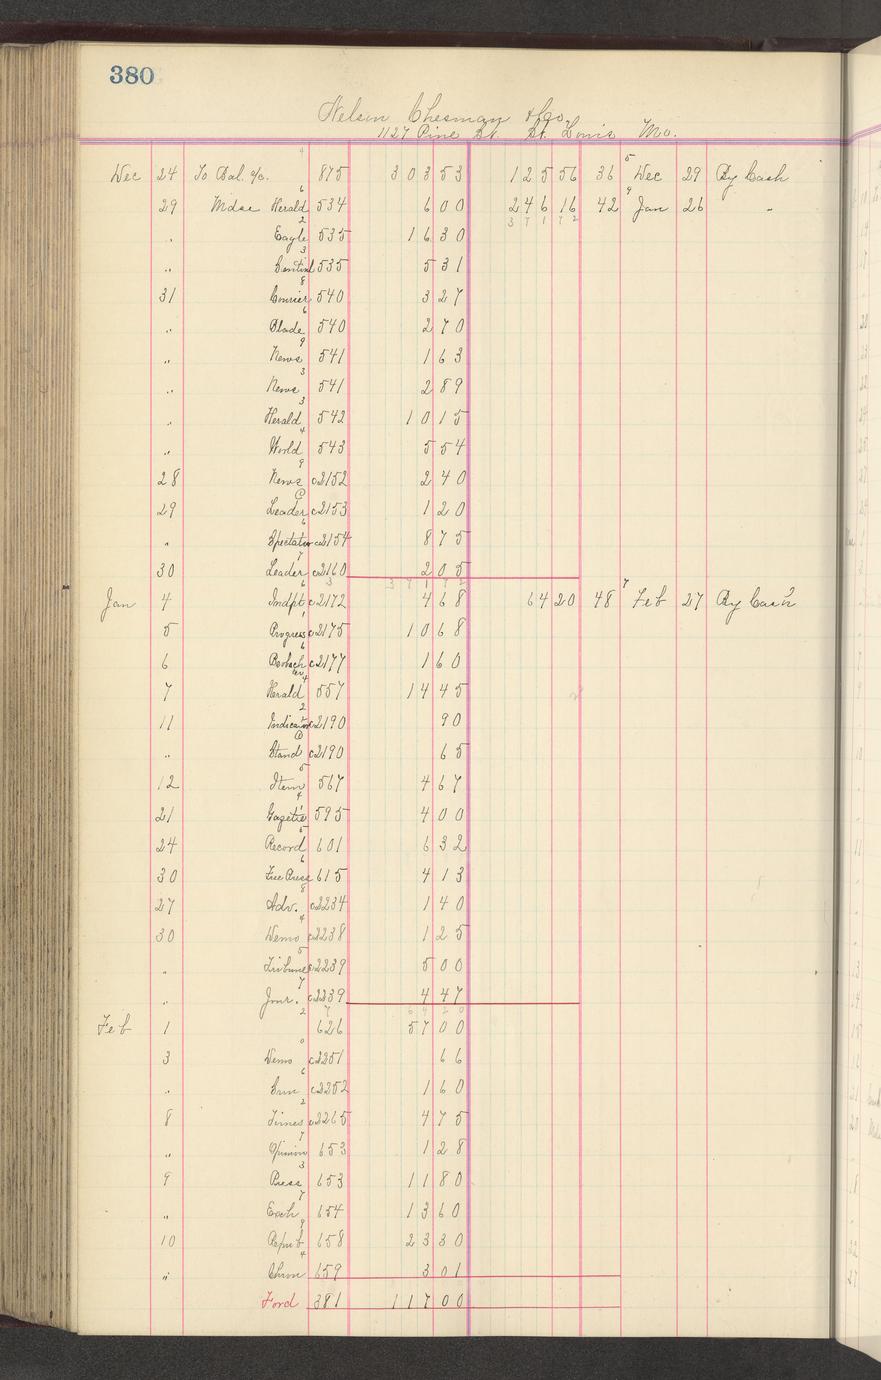 380
Nelson Chesman & Co.
1127 Pine St. St. Louis Mo.
Dec 24 To Bal. a/c. 875 303 53 125 56 36 Dec 29 By Cash
29 Mdse Herald 534 6 00 246 16 42 Jan 26 "
371 72
" Eagle 535 16 30
" Sentinl 535 5 31
31 Courier 540 3 27
" Blade 540 2 70
" News 541 1 63
" News 541 2 89
" Herald 542 10 15
" World 543 5 54
28 News c2152 2 40
29 Leader c2153 1 20
" Spectator c2154 8 75
30 Leader c2160 2 05
371 72
Jan 4 Indpt c2172 4 68 64 20 48 Feb 27 By Cash
5 Progress c2175 10 68
6 c2177 1 60
7 Herald 557 14 45
11 Indicator c2190 90
" Stand c2190 65
12 Item 567 4 67
21 Gazette 595 4 00
24 Record 601 6 32
30 Free Press 615 4 13
27 Adv. c2234 1 40
30 Demo c2238 1 25
" Tribune c2239 5 00
" Jour. c2239 4 47
64 20
Feb 1 626 57 00
3 Demo c2251 66
" Sun c2252 1 60
8 Times c2265 4 75
" Opinion 653 1 28
9 Press 653 11 80
" Each 654 13 60
10 Repub 658 23 30
" Chron 659 3 01
Ford 381 117 00